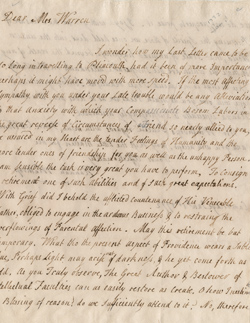 Dear Mrs. Warren
I wonder how my Last Letter came to be
so long in travelling to Plymouth, had it been of more importance
perhaps it might have moved with more speed. If the most affecting
Sympathy with you under your Late trouble would be any alleviation
of that anxiety with which your Compassionate Bosom Labors in
the great reverse of Circumstances of a Friend so nearly allied to you,
be assured in my Heart are the tender Feelings of Humanity and the
more tender ones of Friendship for you as well as the unhappy Person.
I am sensible the task is very great you have to perform, To Consign
to retirement one of such abilities and of such great expectations.
With Grief did I behold the afflicted countenance of His Venerable
Father, obliged to engage in the arduous Business & to restraining the
overflowings of Parental affection. May this retirement be but
temporary. What tho the present aspect of Providence wears a Sable
hue, Perhaps Light may arise out of darkness & he yet come forth as
Gold. As you Truly observe, The Great Author & Bestower of
Intellectual Faculties can as easily restore as Create.
Blessing of reason) do we sufficiently attend to it? No, therefore